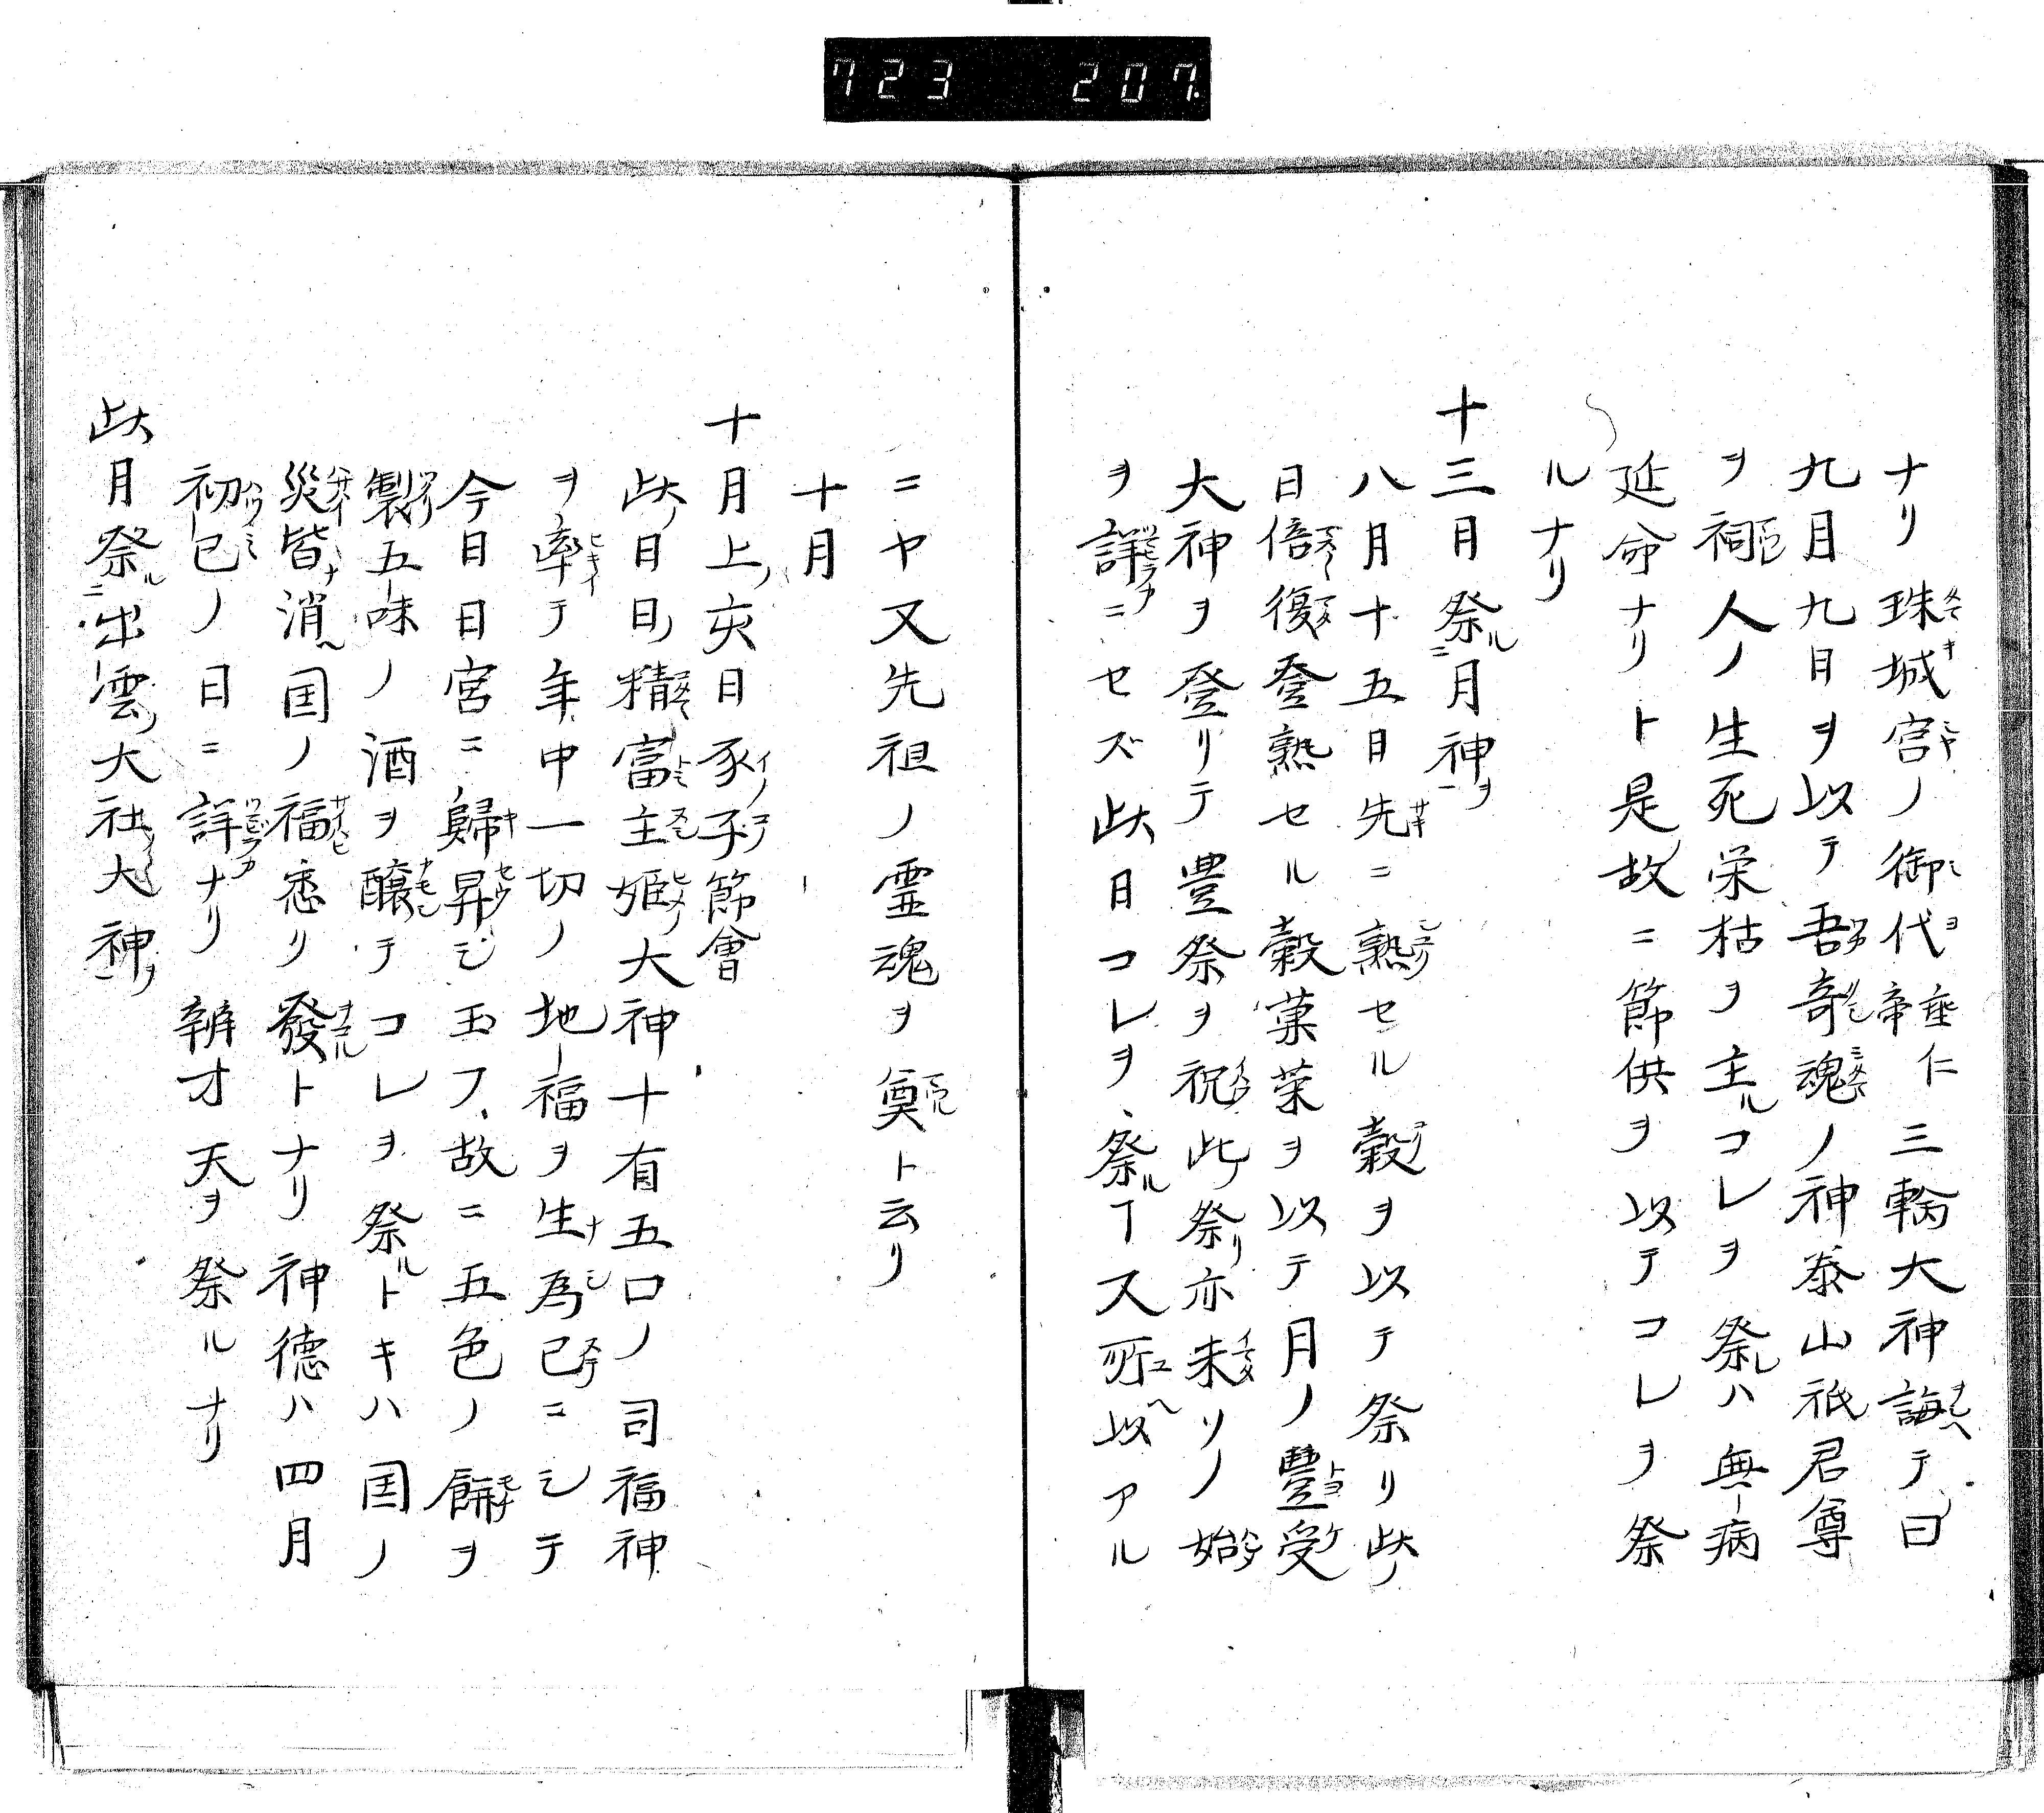 723 207.
ナリ 珠城宮ノ御代垂仁帝三輪大神誨テ曰
九月九日ヲ以テ吾奇魂ノ神泰山祇君尊
ヲ祠人ノ生死栄枯ヲ主ルコレヲ祭レハ無病
延命ナリト是故ニ節供ヲ以テコレヲ祭
ルナリ
十三月祭ル二月神ヲ一
八月十五日先ニ熟セル穀ヲ以テ祭リ此
日倍復登熟セル穀菓菜ヲ以テ月ノ豊受
大神ヲ登リテ豊祭ヲ祝此祭リ亦未ソノ始
ヲ詳ニセズ此日コレヲ祭ルヿ又所以アル
ニヤ又先祖ノ霊魂ヲ奠ト云リ
十月
十月上ノ亥日豕子節會
此日日精富主姫大神十有五口ノ司福神
ヲ率テ年中一切ノ地福ヲ生為已ニシテ
今日日宮ニ歸昇シ玉フ故ニ五色ノ餅ヲ
製五味ノ酒ヲ醸テコレヲ祭ルトキハ国ノ
災皆消ヘ国ノ福悉リ發トナリ神徳ハ四月
初巳ノ日ニ詳ナリ辨才天ヲ祭ルナリ
此月祭ル二出雲大社大神ノ一